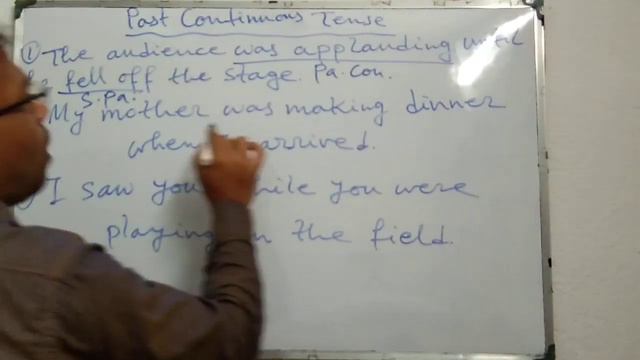 Past Continuous Tense
① The audience was applauding until
fell off the stage. Pa. Con.
S. Pa.
My mother was making dinner
when arrived.
I saw you while you were
playing the field.